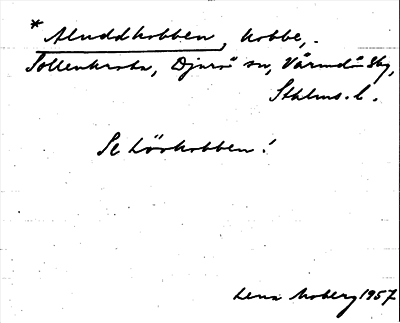 * Aluddkobben, kobbe,.
Sollenkroka, Djurö sn, Värmdö skg,
Sthlms. l.
Se Lövkobben!
Lena Moberg 1957